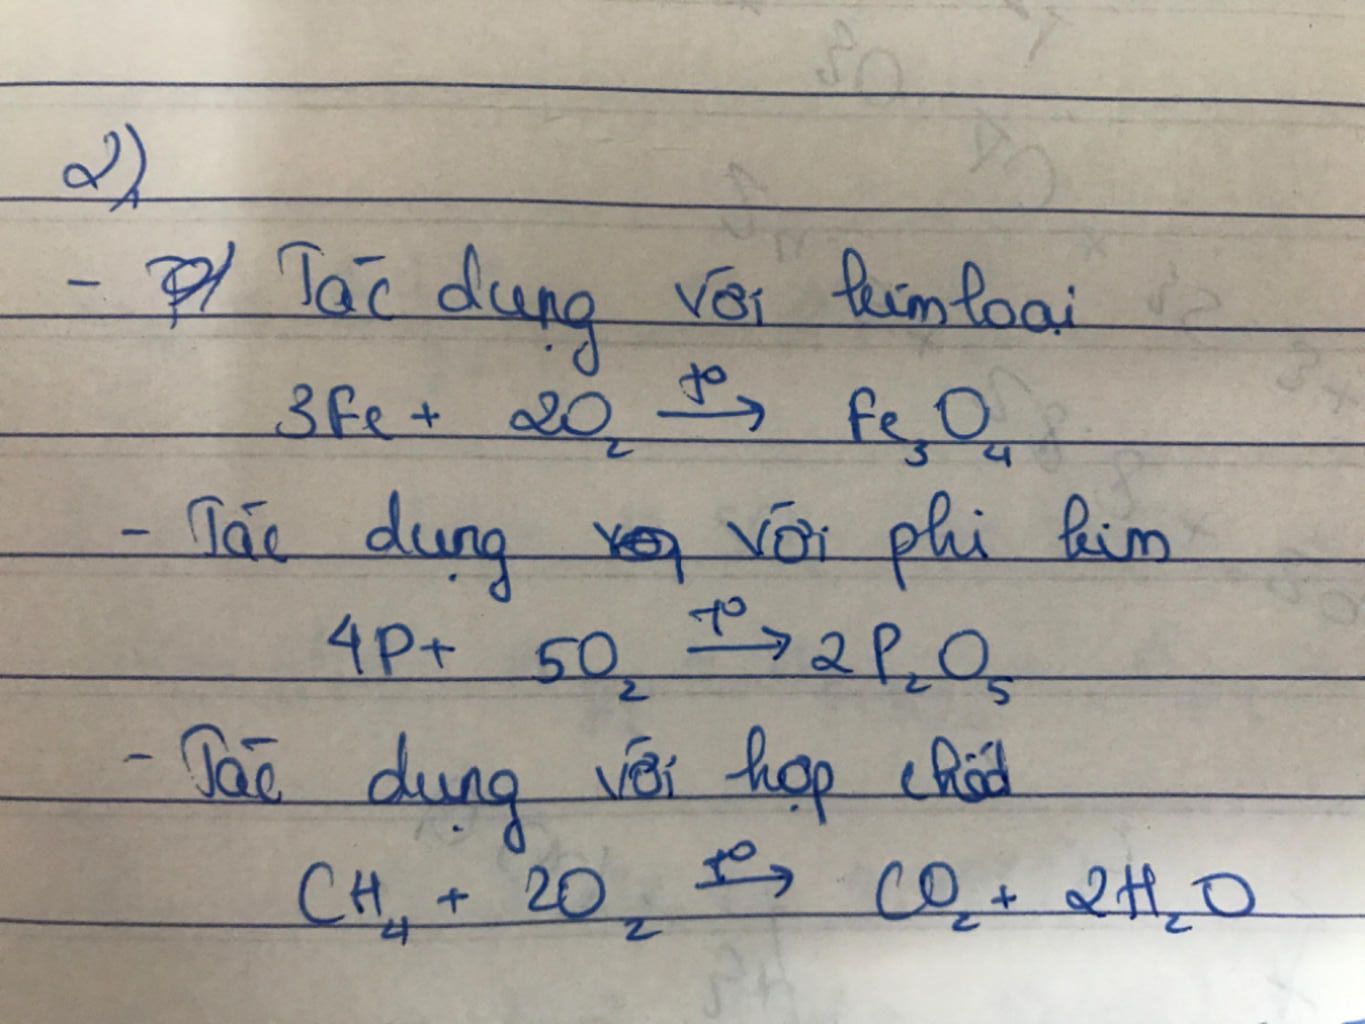 2)
- Tác dụng với kim loại
3Fe + 2O₂ –t°→ Fe₃O₄
- Tác dụng với phi kim
4P + 5O₂ –t°→ 2P₂O₅
- Tác dụng với hợp chất
CH₄ + 2O₂ –t°→ CO₂ + 2H₂O